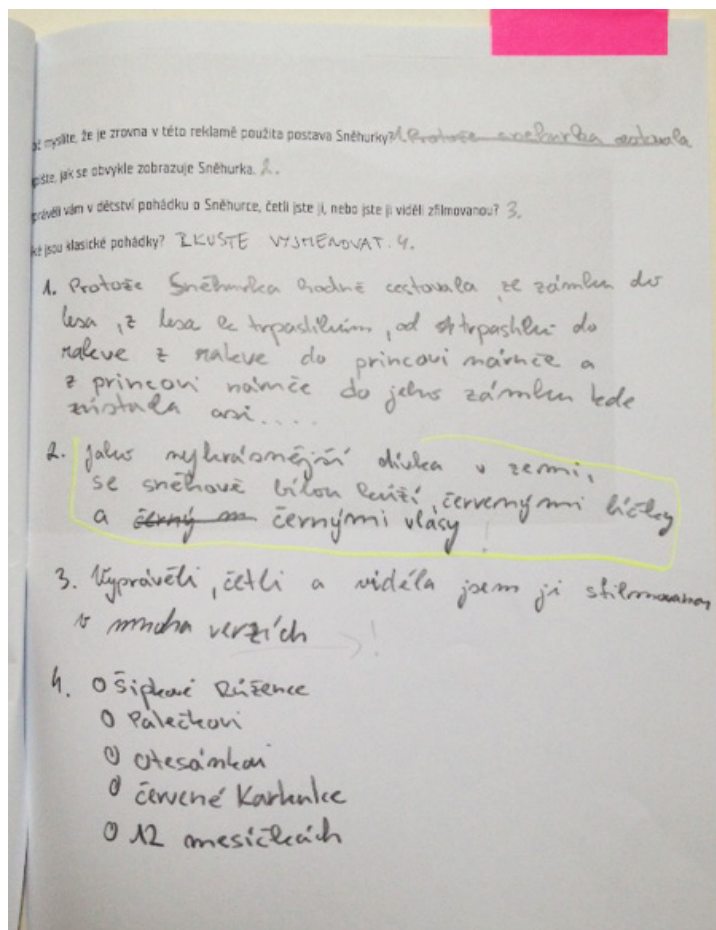 oč myslíte, že je zrovna v této reklamě použita postava Sněhurky? 1. Protože sněhurka cestovala
pište, jak se obvykle zobrazuje Sněhurka. 2.
právěli vám v dětství pohádku o Sněhurce, četli jste ji, nebo jste ji viděli zfilmovanou? 3.
ké jsou klasické pohádky? ZKUSTE VYJMENOVAT. 4.
1. Protože Sněhurka hodně cestovala ze zámku do
lesa, z lesa k trpaslíkům, od trpaslíků do
rakve z rakve do princovi náruče a
z princovi náruče do jeho zámku kde
zůstala asi....
2. Jako nejkrásnější dívka v zemi,
se sněhově bílou kůží, červenými líčky
a černý m černými vlasy!
3. Vyprávěli, četli a viděla jsem ji sfilmovanou
v mnoha verzích →!
4. O Šípkové Růžence
O Palečkovi
O Otesánkovi
O červené Karkulce
O 12 mesíčkách